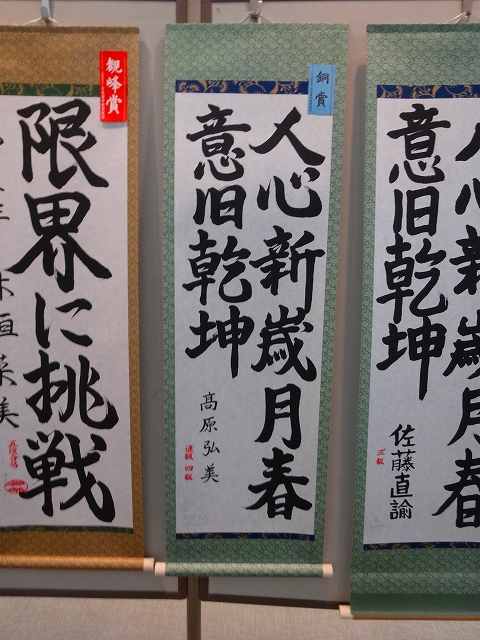 観峰賞
限界に挑戦
垣菜美
銅賞
人心新歳月春
意旧乾坤
高原弘美
進級 四級
人心新歳月春
意旧乾坤
佐藤直諭
三級